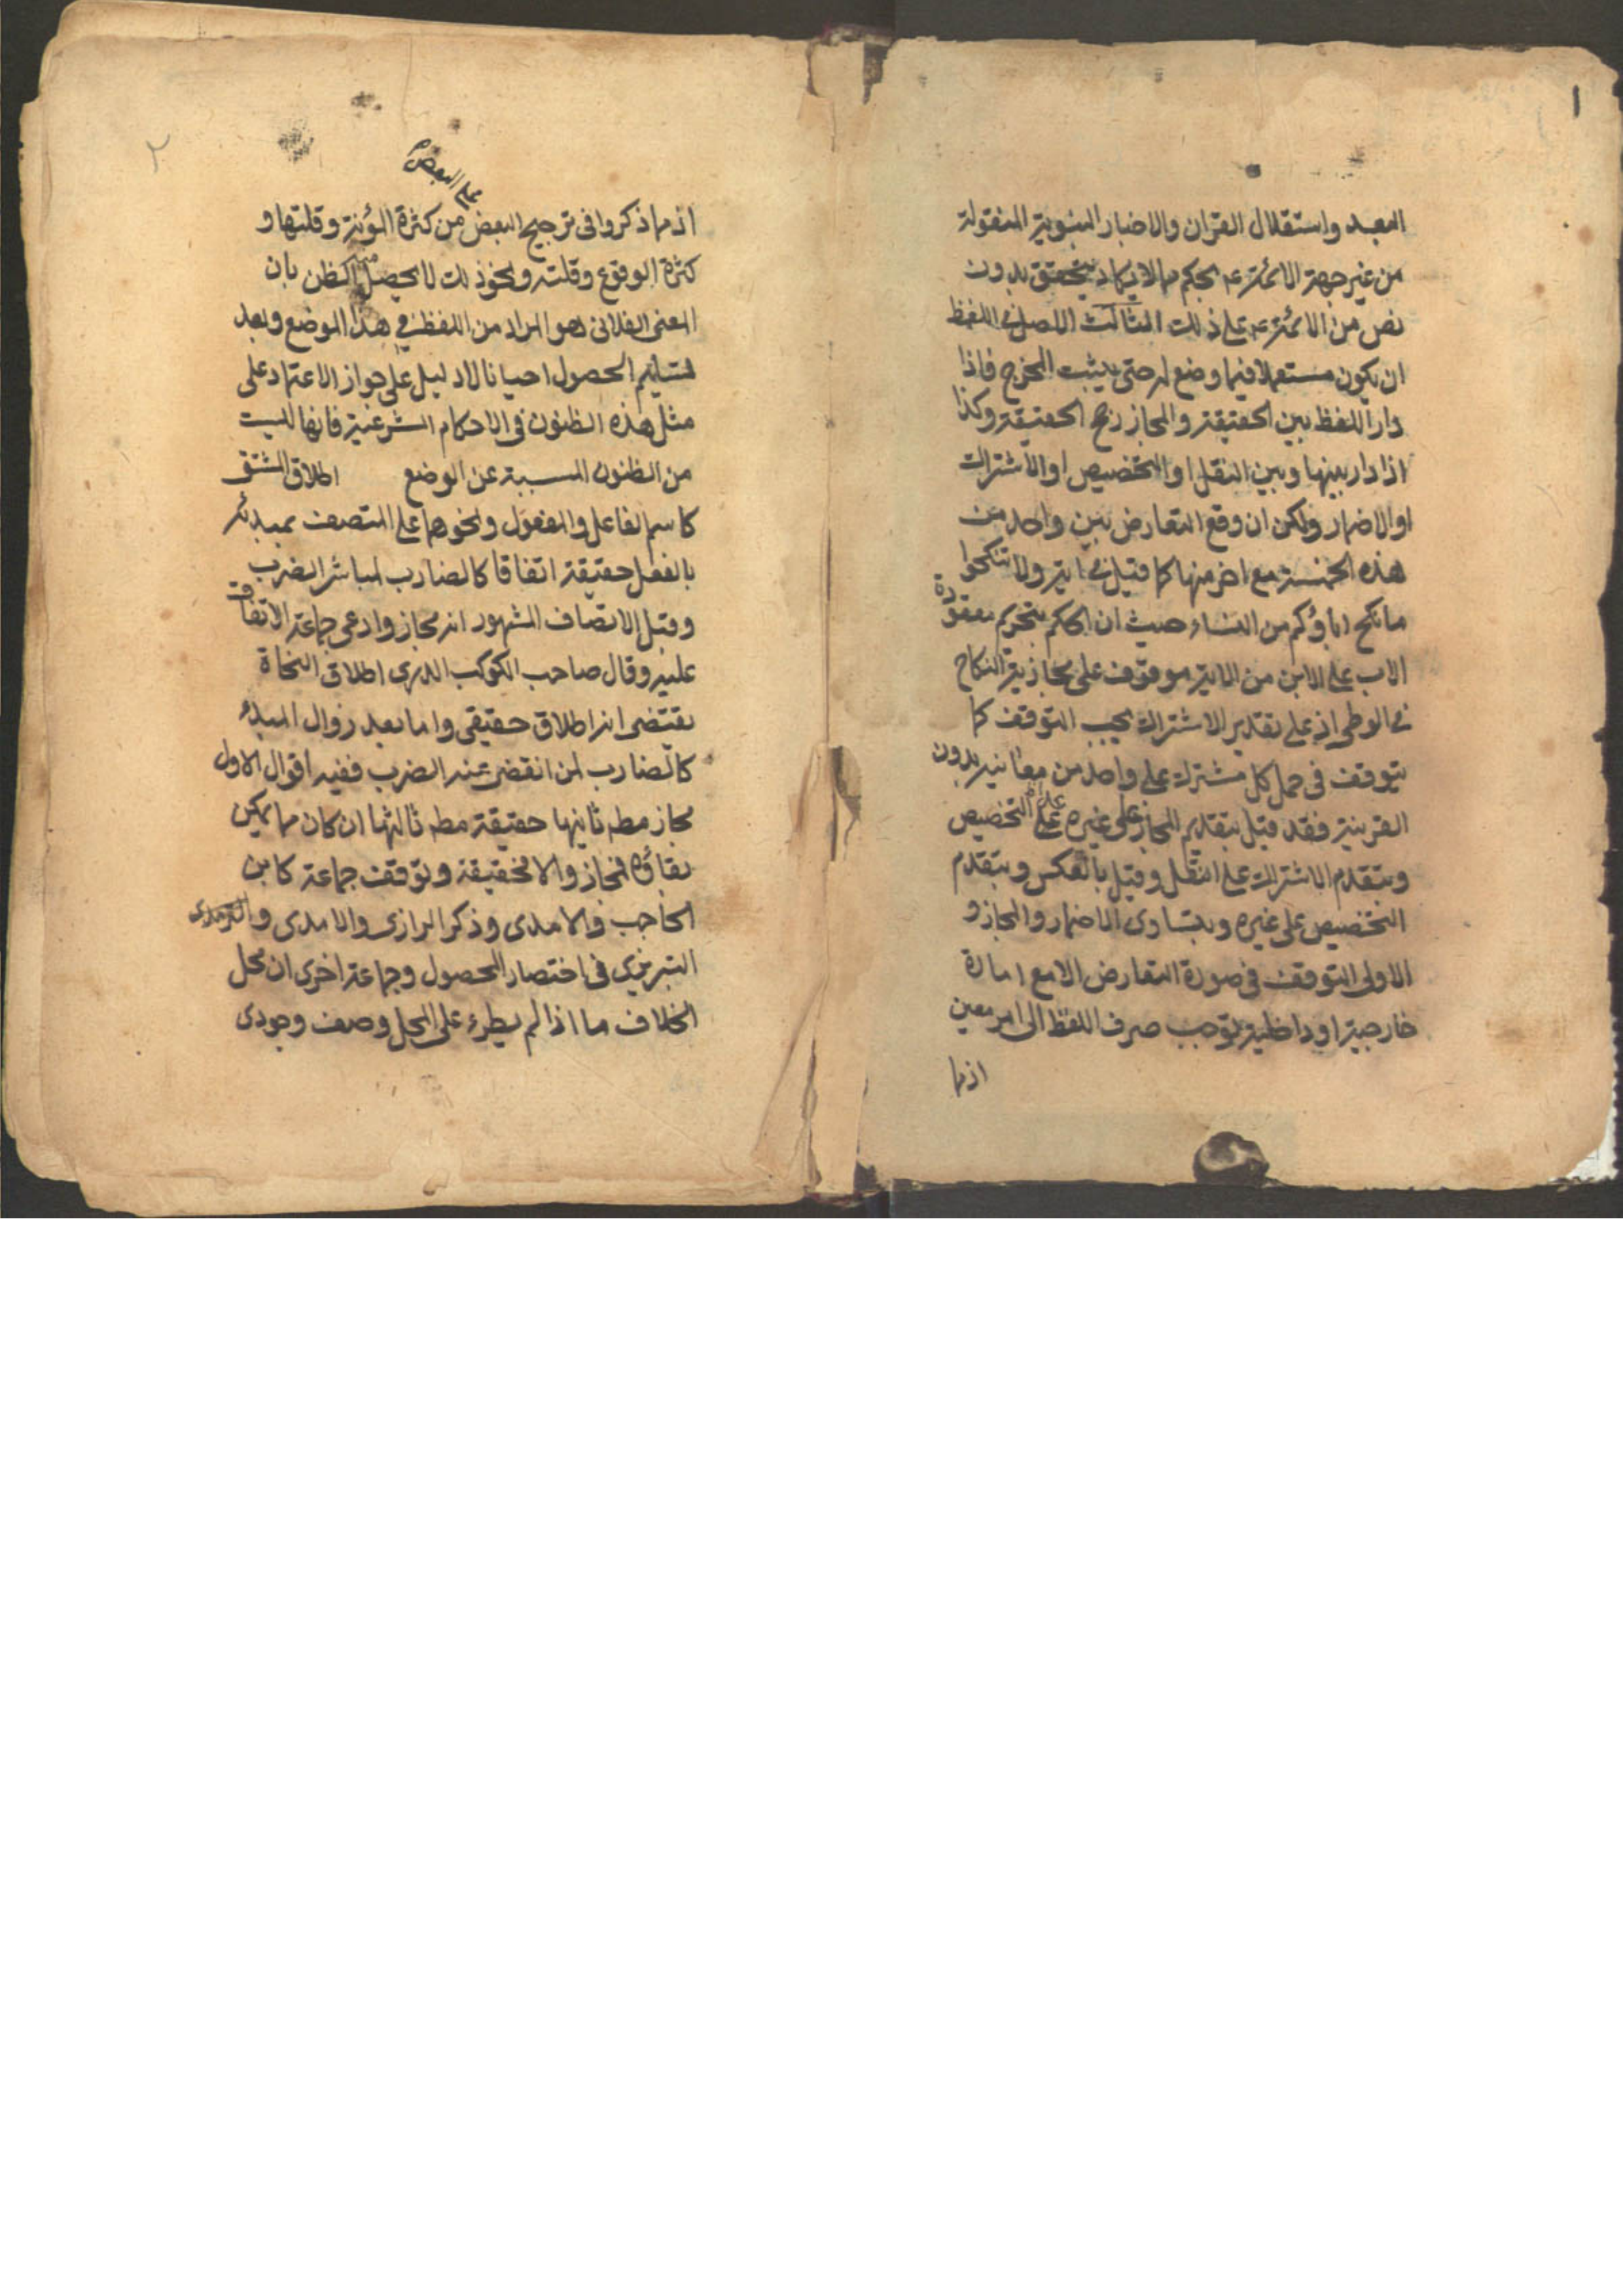 ١
البعيد واستقلال القران والاخبار النبوية المنقولة
من غير جهة الائمة ع بحكم مما لا يكاد يتحقق بدون
نص من الائمة ع على ذلك الثالث الاصل في اللفظ
ان يكون مستعملا فيما وضع له حتى يثبت المخرج فاذا
دار اللفظ بين الحقيقة والمجاز رجح الحقيقة وكذا
اذا دار بينها وبين النقل او التخصيص او الاشتراك
او الاضمار ولكن ان وقع التعارض بين واحد من
هذه الخمسة مع اخر منها كما قيل في اية ولا تنكحوا
ما نكح اباؤكم من النساء حيث ان الحكم بتحريم معقودة
الاب على الابن من الاية موقوف على مجازية النكاح
في الوطى اذ على تقدير الاشتراك يجب التوقف كما
يتوقف في حمل كل مشترك على واحد من معانيه بدون
القرينة فقد قيل بتقديم المجاز على غيره على التخصيص
وبتقدم الاشتراك على النقل وقيل بالعكس وبتقدم
التخصيص على غيره وبتساوى الاضمار والمجاز و
الاولى التوقف في صورة التعارض الا مع امارة
خارجية او داخلية توجب صرف اللفظ الى امر معين
اذ ما
٢
على البعض
اذ مما ذكروا في ترجيح البعض من كثرة المؤنة وقلتها و
كثرة الوقوع وقلته ونحو ذلك لا يحصل الظن بان
المعنى الفلانى هو المراد من اللفظ في هذا الموضع وبعد
تسليم الحصول احيانا لا دليل على جواز الاعتماد على
مثل هذه الظنون في الاحكام الشرعية فانها ليست
من الظنون المسببة عن الوضع اطلاق المشتق
كاسم الفاعل والمفعول ونحوهما على المتصف بمبدئه
بالفعل حقيقة اتفاقا كالضارب لمباشر الضرب
وقبل الاتصاف المشهور انه مجاز وادعى جماعة الاتفاق
عليه وقال صاحب الكوكب الدرى اطلاق النحاة
يقتضى انه اطلاق حقيقى واما بعد زوال المبدء
كالضارب لمن انقضى عنه الضرب ففيه اقوال الاول
مجاز مطه ثانيها حقيقة مطه ثالثها ان كان مما يمكن
بقاؤه فمجاز والا فحقيقة وتوقف جماعة كابن
الحاجب والامدى وذكر الرازى والامدى و
التبريزى في اختصار المحصول وجماعة اخرى ان محل
الخلاف ما اذا لم يطرء على المحل وصف وجودى